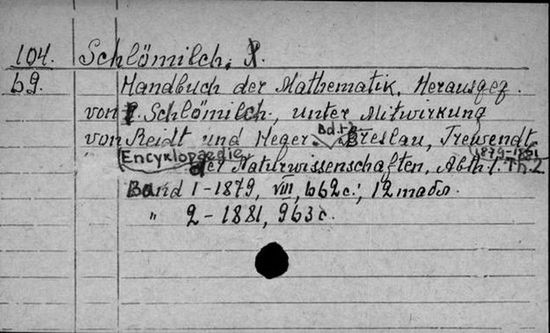 104. Schlömilch,
69. Handbuch der Mathematik, Herausgeg.
von Schlömilch, unter Mitwirkung
von Reidt und Heger. Bd. 1-2 Breslau, Trewendt,
1879-1881
Encyklopaedie der Naturwissenschaften, Abth. 1. Th. 2
Band 1-1879, VIII, 662 c.; 12 табл.
" 2-1881, 963 c.